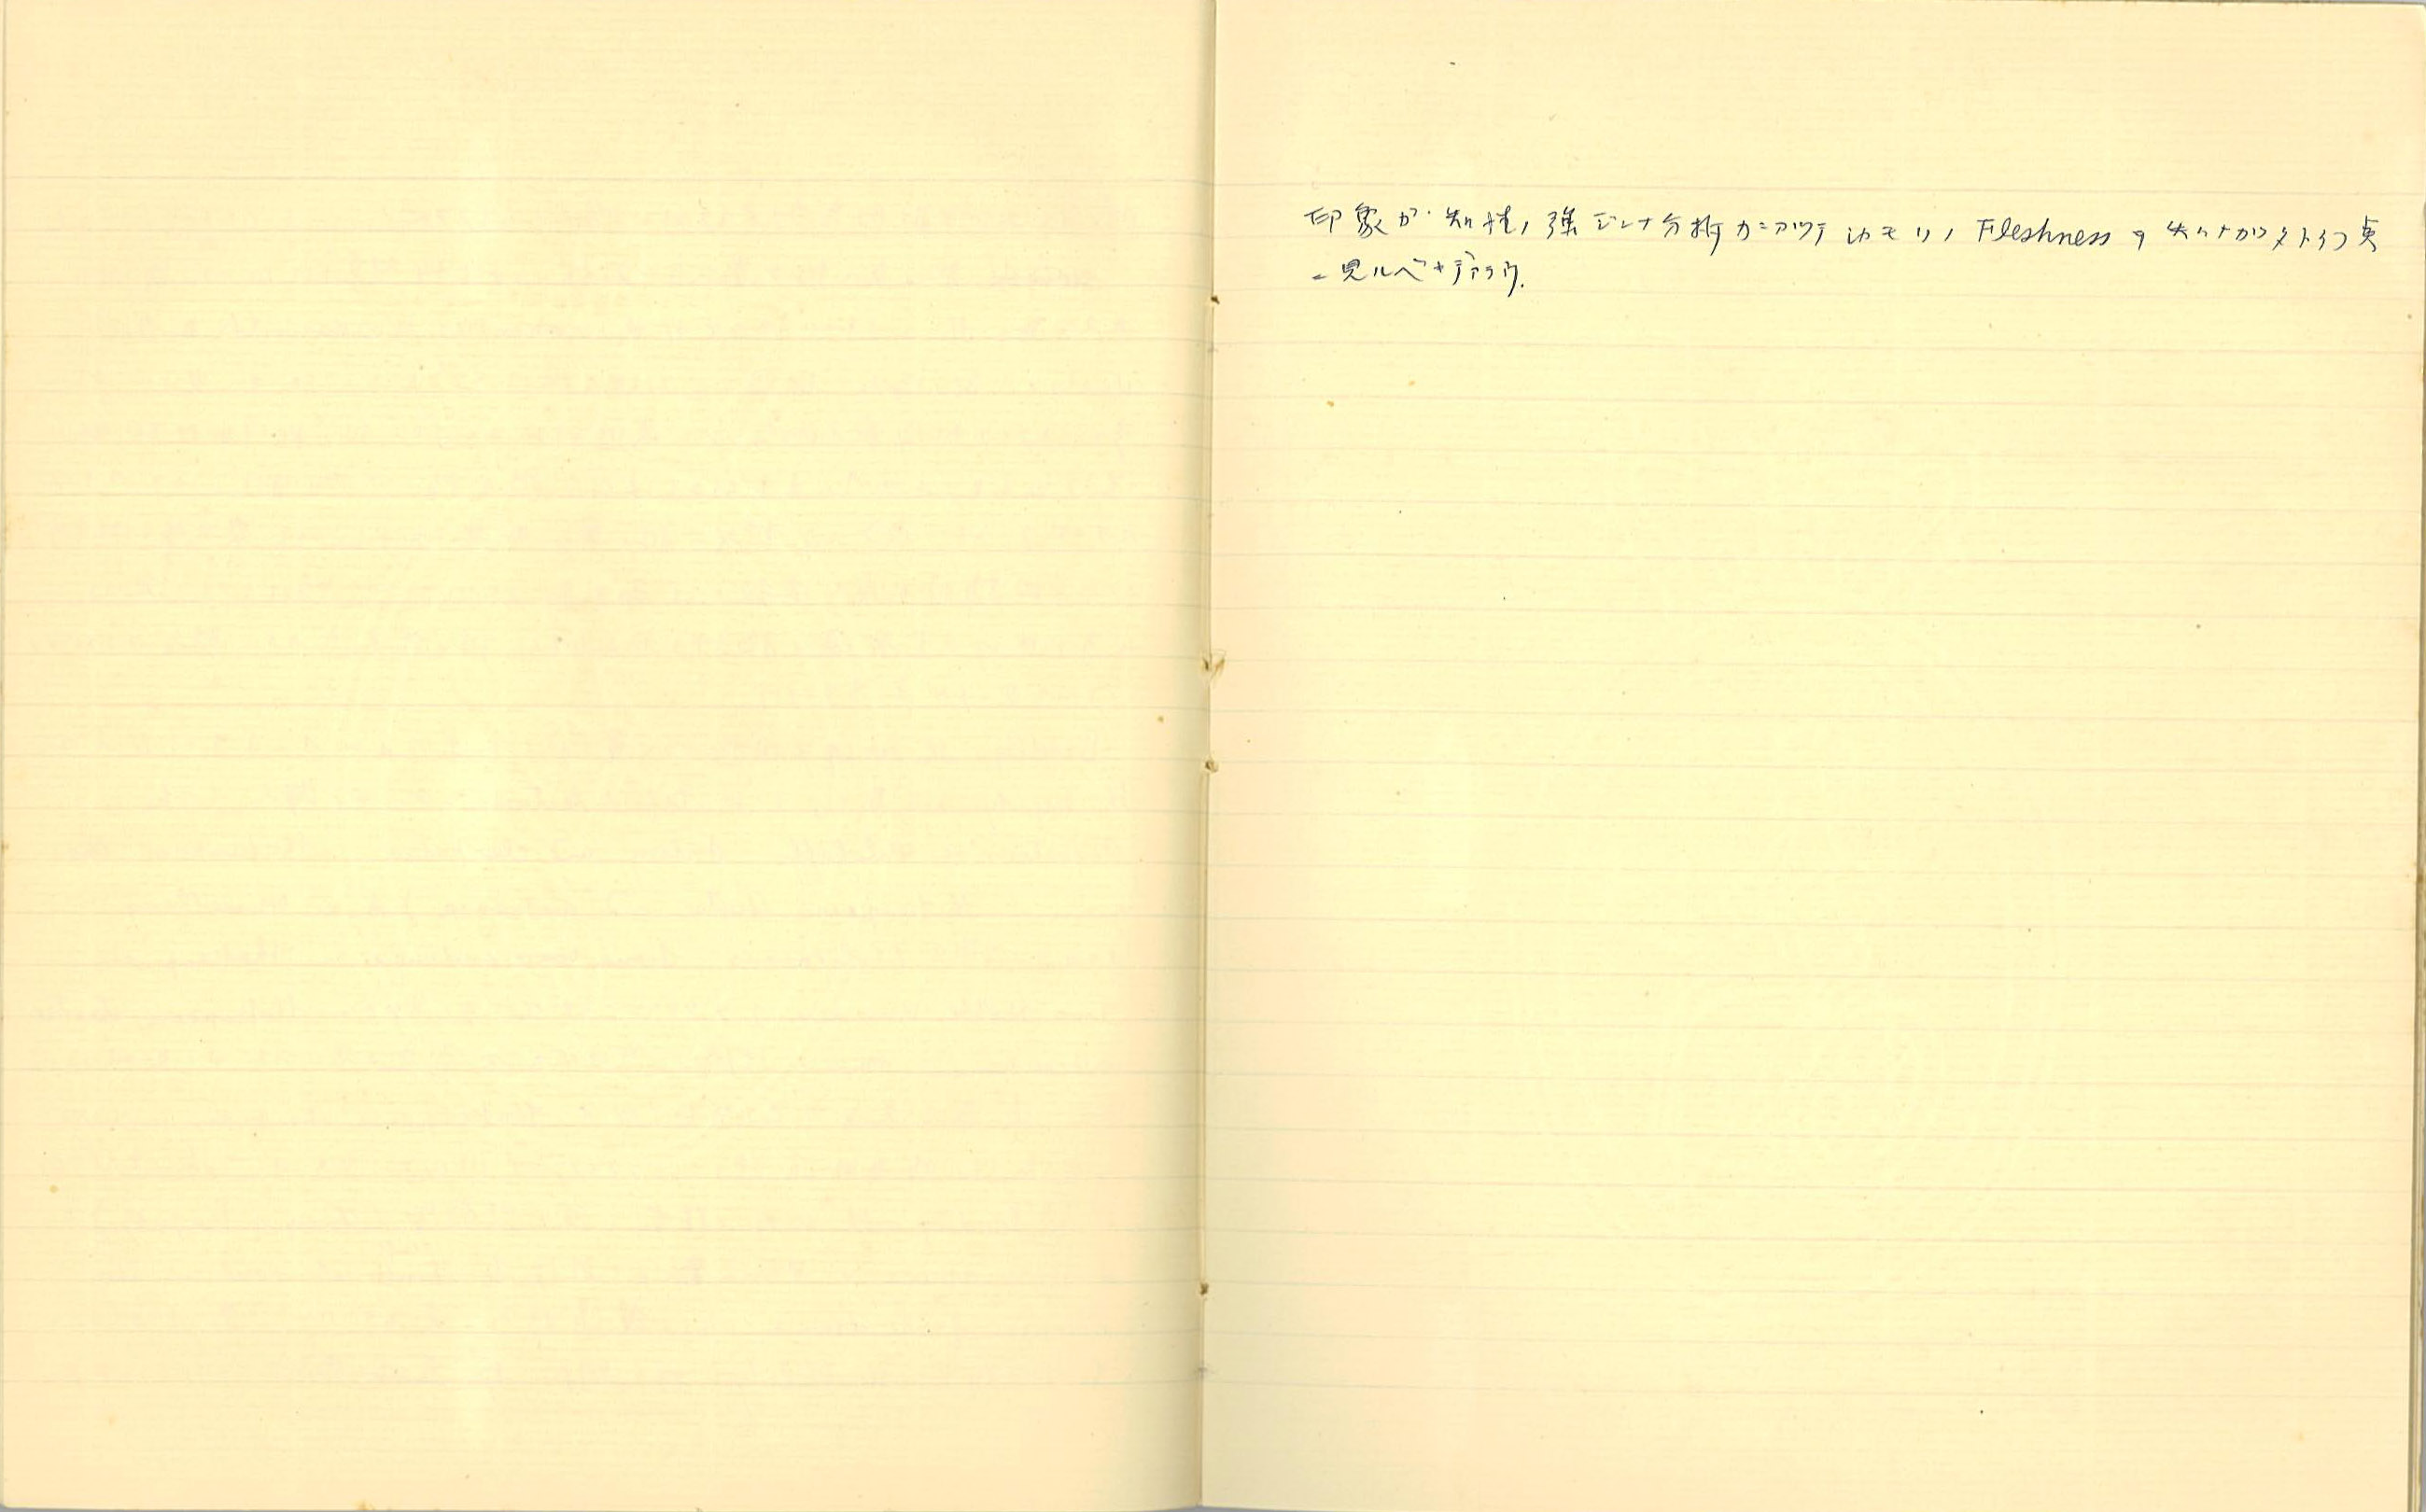 印象ガ知性ノ強ジンナ分析力ニアツテ Fleshnessヲ失ハナカツタトイフ点
ニ見ルベキデアラウ.